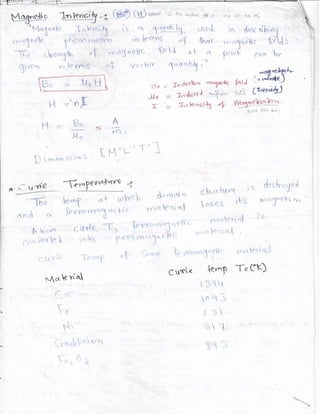 Magnetic Intensity :- (H)
Magnetic Intensity is a quantity used in describing
magnetic phenomenon in terms of their magnetic fields
The strength of magnetic field at a point can be
given in terms of vector quantity.
B₀ = μ₀H
B₀ = Induction magnetic field
H = nI
I = Intensity of Magnetisation
H = B₀/μ₀ = A/m
Dimensions [M°L⁻¹T°]
* Curie Temperature :-
The temp. at which domain structure is destroyed
and a ferromagnetic material loses its magnetism
Above curie T, ferromagnetic material is
converted into paramagnetic material.
Curie Temp of Some ferromagnetic material
Material Curie temp Tc(°K)
Co 1394
Fe 1043
Ni 631
Gadolinium 317
Fe₂O₃ 893